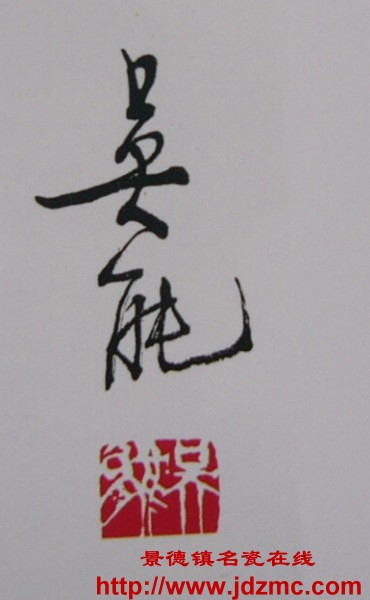 吴能
景德镇名瓷在线
http://www.jdzmc.com